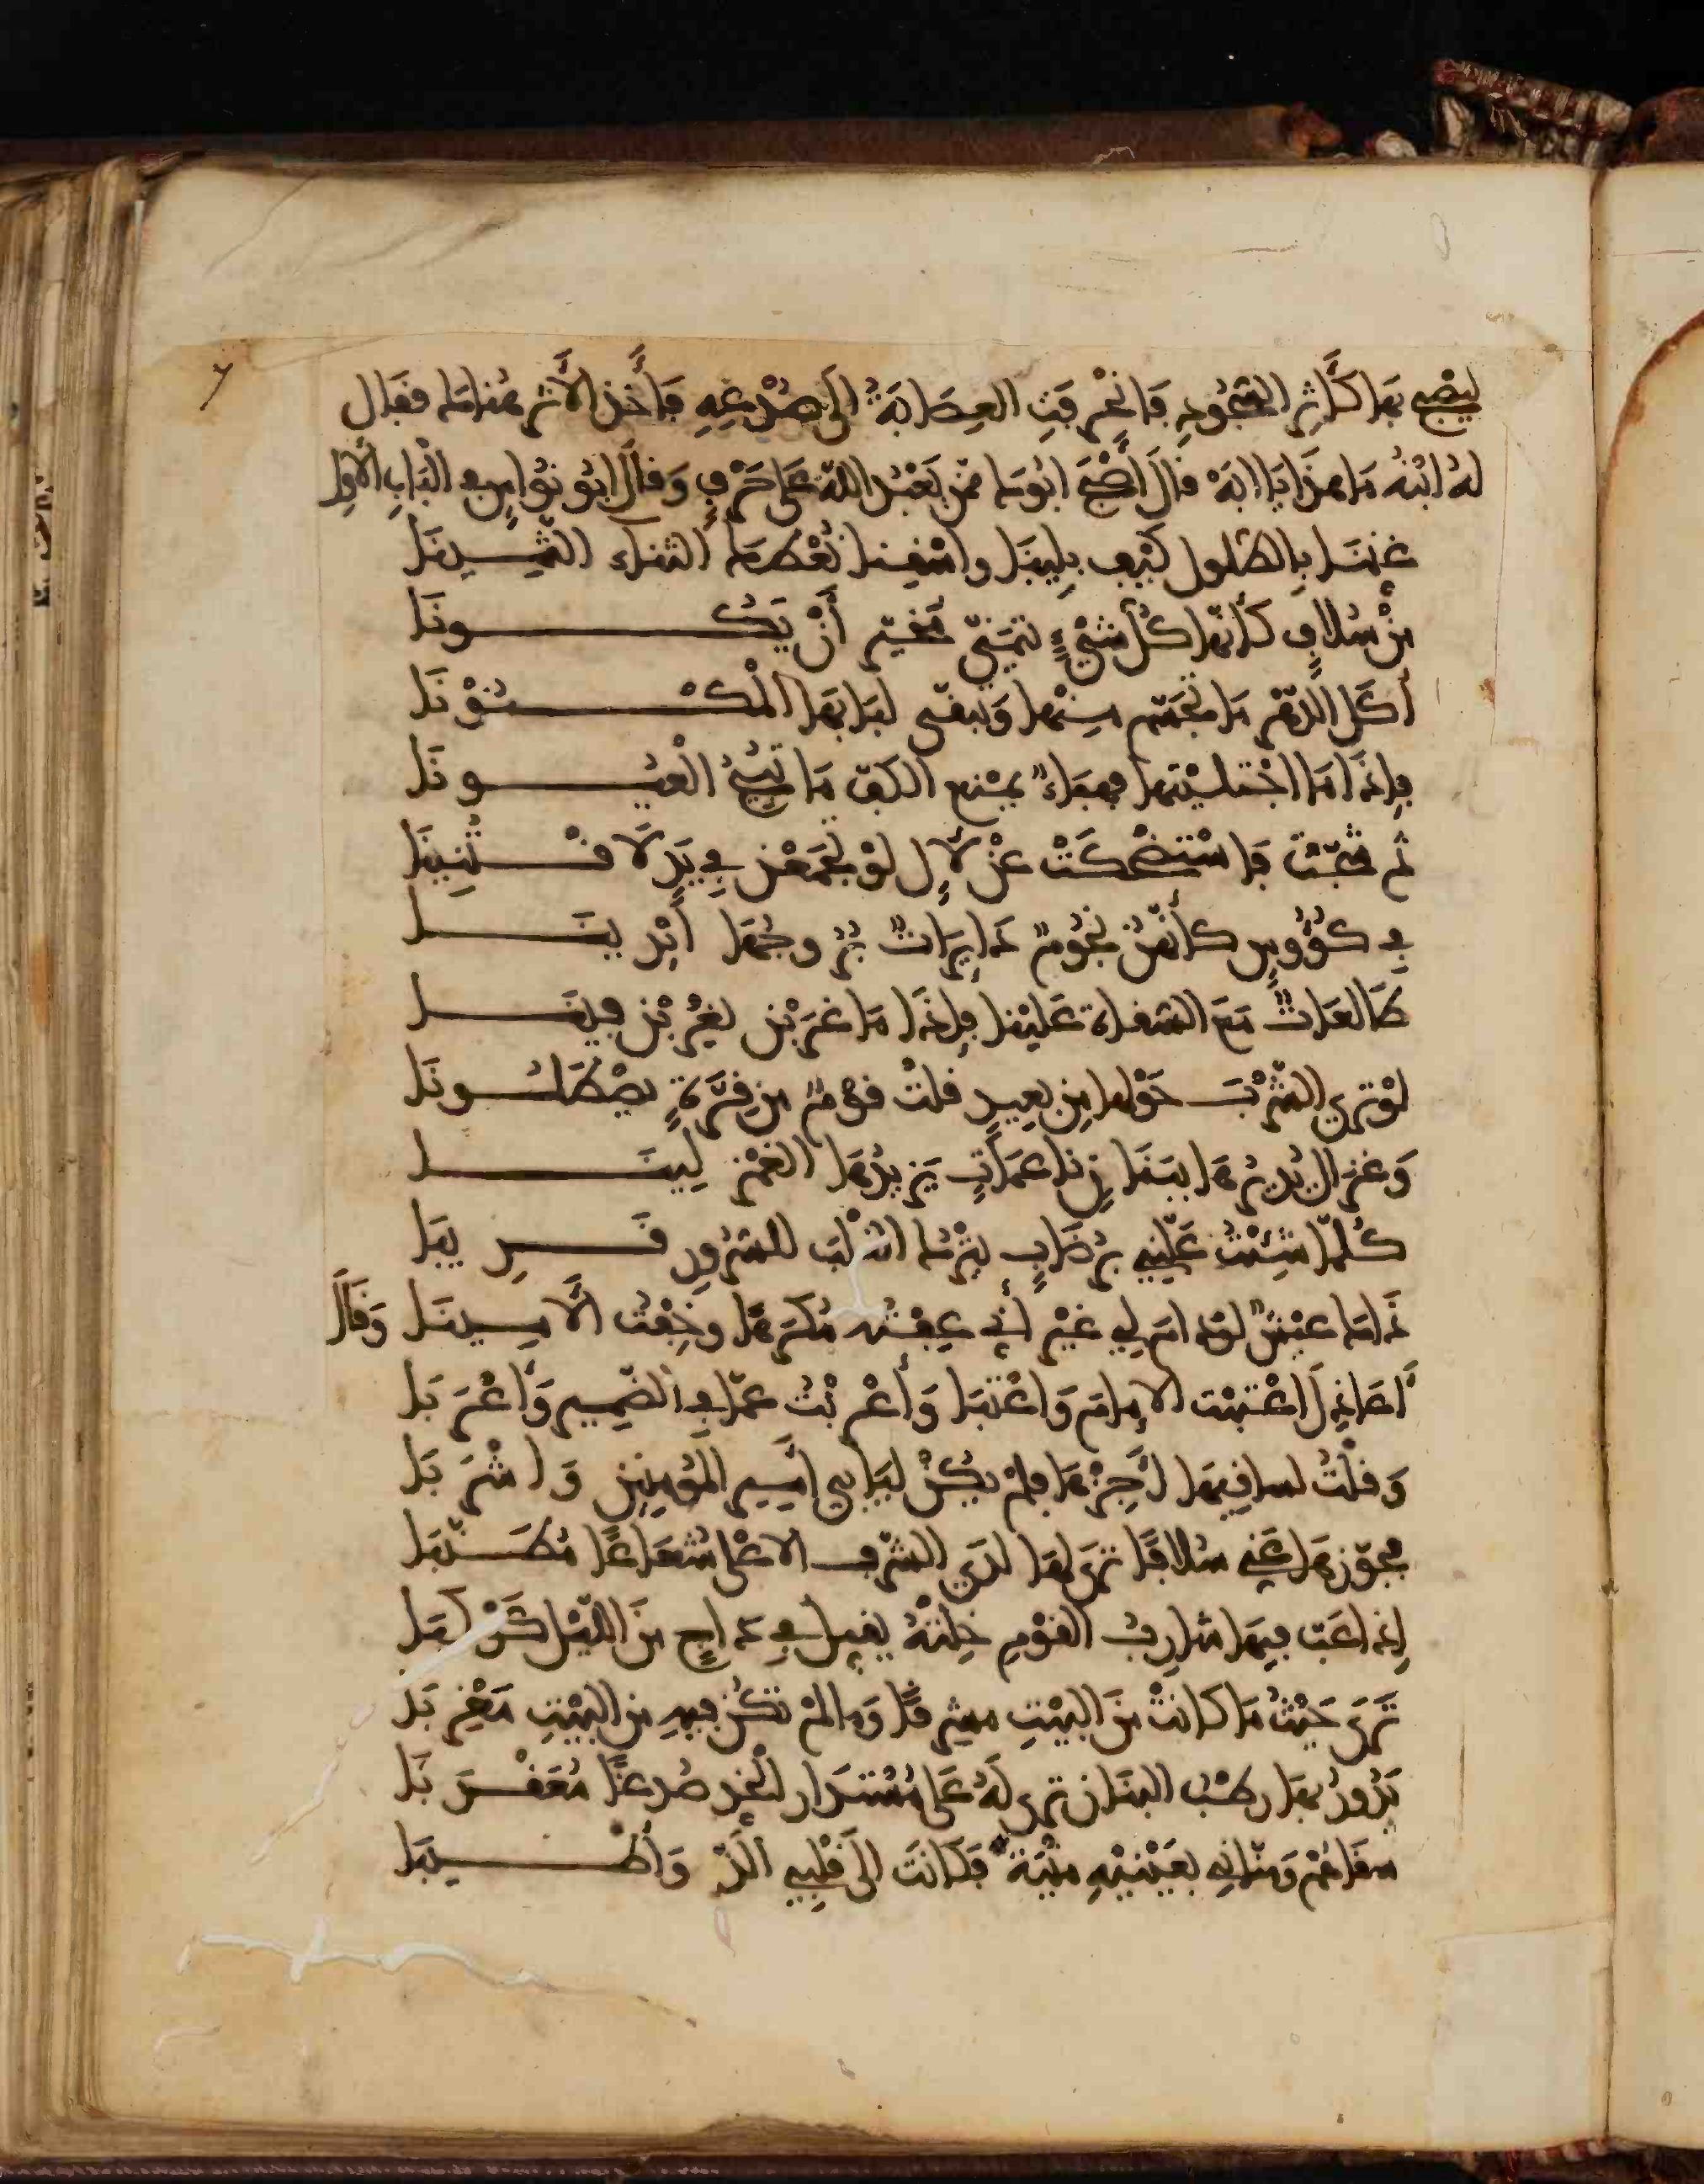 ليضع بها كأثر السجود فانحرفت العصابة الى صدغه فأخذ الأثر هناك فقال
له ابنه ما هذا يا ابه قال أصبح ابوك ممن يعبد الله على حرف وقال ابو نواس في الباب الأول
غننا بالطلول كيف بلينا واسقنا نعطك الثناء الثمينا
من سلاف كأنها كل شيء يتمنى مخير أن يكونا
أكل الدهر ما تجسم منها وتبقى لبابها المكنونا
فإذا ما اجتليتها فهباء يمنع الكف ما تبيح العيونا
ثم شجت فاستضحكت عن لآل لو تجمعن في يد لاقتنينا
في كؤوس كأنهن نجوم دايرات بروجها أيدينا
طالعات مع السقاة علينا فإذا ما غربن يغربن فينا
لو ترى الشرب حولها من بعيد قلت قوم من قرة يصطلونا
وغزال يديرها ببنان ناعمات يزيدها الغمز لينا
كلما شئت علني برضاب يترك القلب للسرور قرينا
ذاك عيش لو دام لي غير أني عفته مكرها وخفت الأمينا وقال
أعاذل أعتبت الإمام وأعتبا وأعربت عما في الضمير وأعربا
وقلت لساقيها أجزها فلم يكن ليأبى أمير المؤمنين وأشربا
فجوزها عني سلافا ترى لها لدى الشرف الأعلى شعاعا مطنبا
إذا عب فيها شارب القوم خلته يقبل في داج من الليل كوكبا
ترى حيث ما كانت من البيت مشرقا وما لم تكن فيه من البيت مغربا
يدور بها رطب البنان ترى له على مستدار الخد صدغا معقربا
سقاهم ومناني بعينيه منية فكانت الى قلبي ألذ وأطيبا